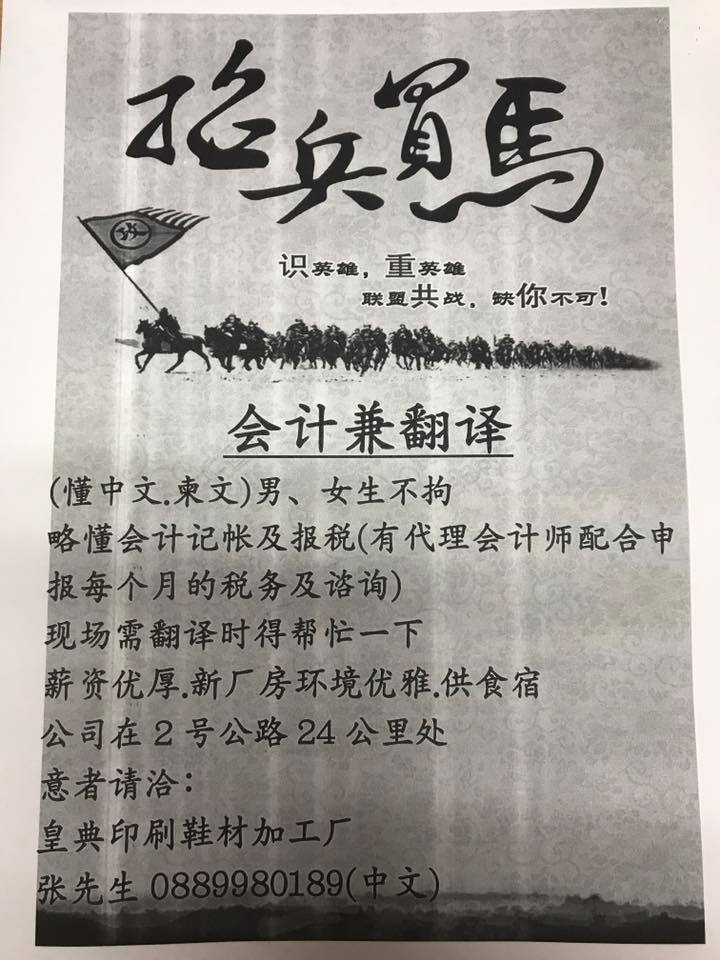 招兵買馬
识英雄，重英雄
联盟共战，缺你不可！
会计兼翻译
(懂中文.柬文)男、女生不拘
略懂会计记帐及报税(有代理会计师配合申
报每个月的税务及谘询)
现场需翻译时得帮忙一下
薪资优厚.新厂房环境优雅.供食宿
公司在 2 号公路 24 公里处
意者请洽：
皇典印刷鞋材加工厂
张先生 0889980189(中文)